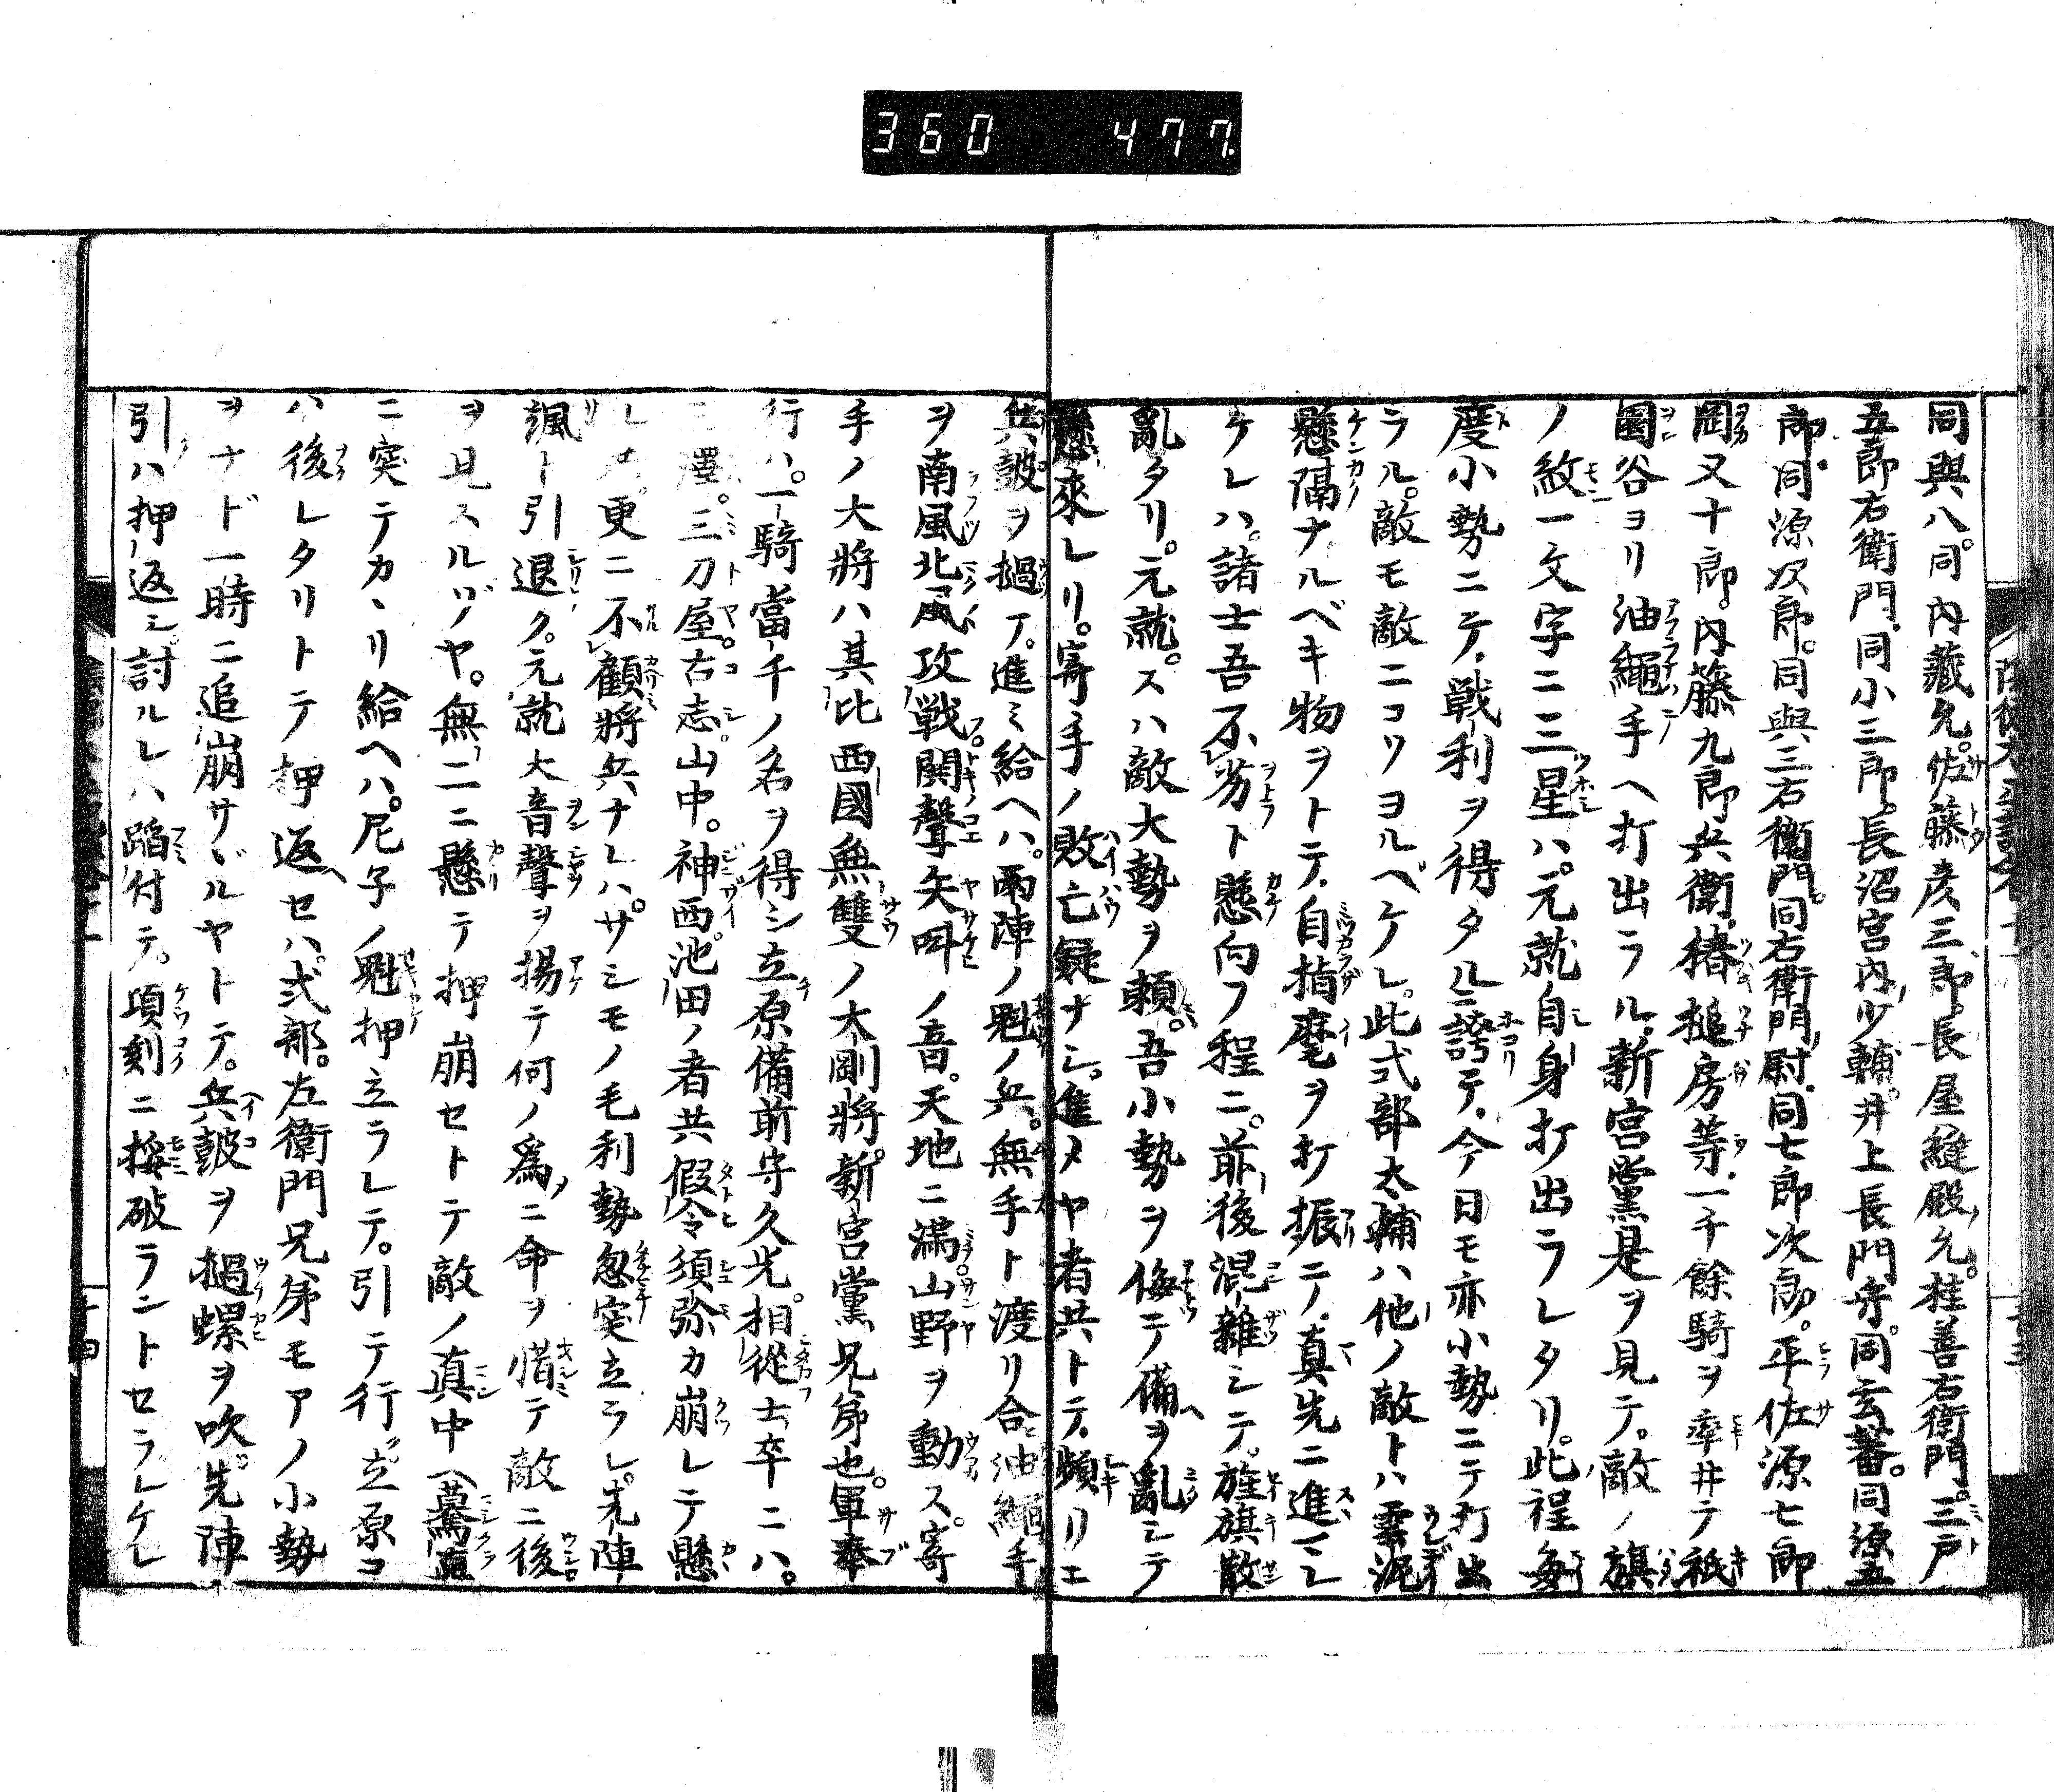 360 477
同與八。同内藏允。佐藤彦三郎。長屋縫殿允。桂善右衛門。三戸
五郎右衛門。同小三郎。長沼宮内少輔。井上長門守。同玄蕃。同源五
郎。同源次郎。同與三右衛門。同右衛門尉。同七郎次郎。平佐源七郎
岡又十郎。内藤九郎兵衛。椿槌房等。一千餘騎ヲ率井テ祇
園谷ヨリ油繩手ヘ打出ラル。新宮黨是ヲ見テ。敵ノ旗
ノ紋一文字ニ三星ハ。元就自身打出ラレタリ。此程毎
度小勢ニテ。戦利ヲ得タルニ誇テ。今日モ亦小勢ニテ打出
ラル。敵モ敵ニコソヨルベケレ。此式部太輔ハ他ノ敵トハ雲泥
懸隔ナルベキ物ヲトテ。自指麾ヲ打振テ。真先ニ進ミ
ケレハ。諸士吾不劣ト懸向フ程ニ。前後混雜シテ。旌旗散
亂タリ。元就。スハ敵大勢ヲ頼。吾小勢ヲ侮テ備ヲ亂シテ
懸來レリ。寄手ノ敗亡疑ナシ。進メヤ者共トテ。頻リニ
兵皷ヲ撾テ。進ミ給ヘハ。両陣ノ魁ノ兵。無手ト渡リ合油繩手
ヲ南風北風攻戦鬨聲矢叫ノ音。天地ニ満山野ヲ動ス。寄
手ノ大將ハ其比西國無雙ノ大剛將。新宮黨兄弟也。軍奉
行ハ。一騎當千ノ名ヲ得シ立原備前守久光。相從士卒ニハ。
三澤。三刀屋。古志。山中。神西。池田ノ者共假令須弥カ崩レテ懸
レハ。更ニ不顧將兵ナレハ。サシモノ毛利勢忽突立ラレ。先陣
颯ト引退ク。元就大音聲ヲ揚テ何ノ爲ニ命ヲ惜テ敵ニ後
ヲ見スルゾヤ。無二ニ懸テ押崩セトテ敵ノ真中ヘ驀直
ニ突テカヽリ給ヘハ。尼子ノ魁押立ラレテ。引テ行ヲ。立原コ
ハ後レタリトテ押返セハ。式部。左衛門兄弟モアノ小勢
ヲナド一時ニ追崩サヾルヤトテ。兵皷ヲ撾螺ヲ吹。先陣
引ハ押返シ。討ルレハ蹈付テ。頃刻ニ挼破ラントセラレケレ
十四